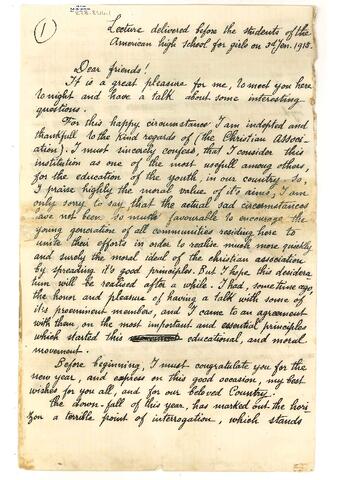 1
Lecture delivered before the students of the
American high school for girls on 3d Jen. 1915.
Dear friends!
It is a great pleasure for me, to meet you here
to night and have a talk about some interesting
questions.
For this happy circumstance I am indepted and
thankfull to the kind regards of (the Christian Associ-
ation). I must sincerely confess, that I consider this
institution as one of the most usefull among others,
for the education of the youth, in our country. So,
I praise highly the moral value of it's aims, I am
only sorry to say that the actual sad circumstances
have not been so much favourable to encourage the
young generation of all communities residing here to
unite their efforts in order to realise much more quickly
and surely the moral ideal of the christian association
by spreading it's good principles. But I hope this desidera-
tum will be realised after a while. I had, some time ago,
the honor and pleasure of having a talk with some of
it's preeminent members, and I came to an agreement
with them, on the most important and essential principles
which started this educational, and moral
movement.
Before beginning, I must congratulate you for the
new year, and express on this good occasion, my best
wishes for you all, and for our beloved Country.
The down-fall of this year, has marked out the hori-
zon a terrible point of interrogation, which stands